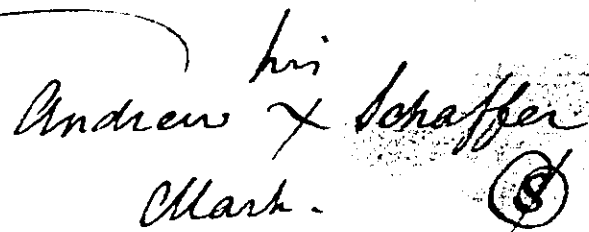 his
Andrew X Schaffer
Mark. S